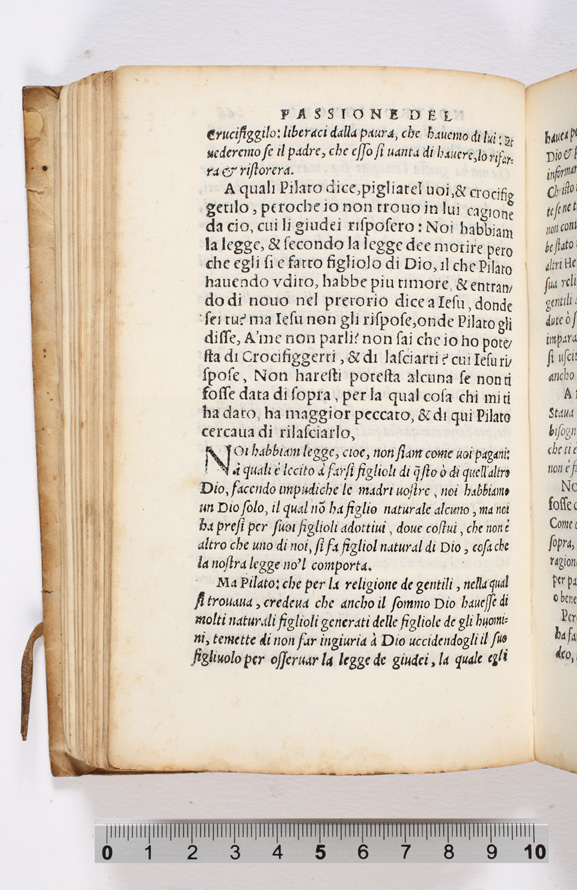 PASSIONE DEL
Crucifiggilo: liberaci dalla paura, che hauemo di lui: Et
uederemo se il padre, che esso si uanta di hauere, lo rifar-
ra & ristorera.
A quali Pilato dice, pigliatel uoi, & crocifig
getilo, peroche io non trouo in lui cagione
da cio, cui li giudei risposero: Noi habbiam
la legge, & secondo la legge dee morire pero
che egli si e fatto figliolo di Dio, il che Pilato
hauendo vdito, habbe piu timore, & entran/
do di nouo nel pretorio dice a Iesu, donde
sei tu? ma Iesu non gli rispose, onde Pilato gli
disse, A'me non parli? non sai che io ho pote/
sta di Crocifiggerti, & di lasciarti? cui Iesu ri/
spose, Non haresti potesta alcuna se non ti
fosse data di sopra, per la qual cosa chi mi ti
ha dato, ha maggior peccato, & di qui Pilato
cercaua di rilasciarlo,
NOi habbiam legge, cioe, non siam come uoi pagani:
à quali è lecito à farsi figlioli di q̃sto ò di quell'altro
Dio, facendo impudiche le madri uostre, noi habbiamo
un Dio solo, il qual nõ ha figlio naturale alcuno, ma noi
ha presi per suoi figlioli adottiui, doue costui, che non è
altro che uno di noi, si fa figliol natural di Dio, cosa che
la nostra legge no'l comporta.
Ma Pilato: che per la religione de gentili, nella qual
si trouaua, credeua che ancho il sommo Dio hauesse di
molti naturali figlioli generati delle figliole de gli huomi-
ni, temette di non far ingiuria à Dio uccidendogli il suo
figliuolo per osseruar la legge de giudei, la quale egli
hauea pe
Dio & f
informar
Christo
te se ne t
non conu
be stato
altri He
sua reli
gentili
dute ò s
impara
si uscit
ancho
A
Staua
bisogn
che ti e
non è fi
No
fosse c
Come
sopra,
ragion
per pa
o bene
Per
ha fa
deo,
0 1 2 3 4 5 6 7 8 9 10